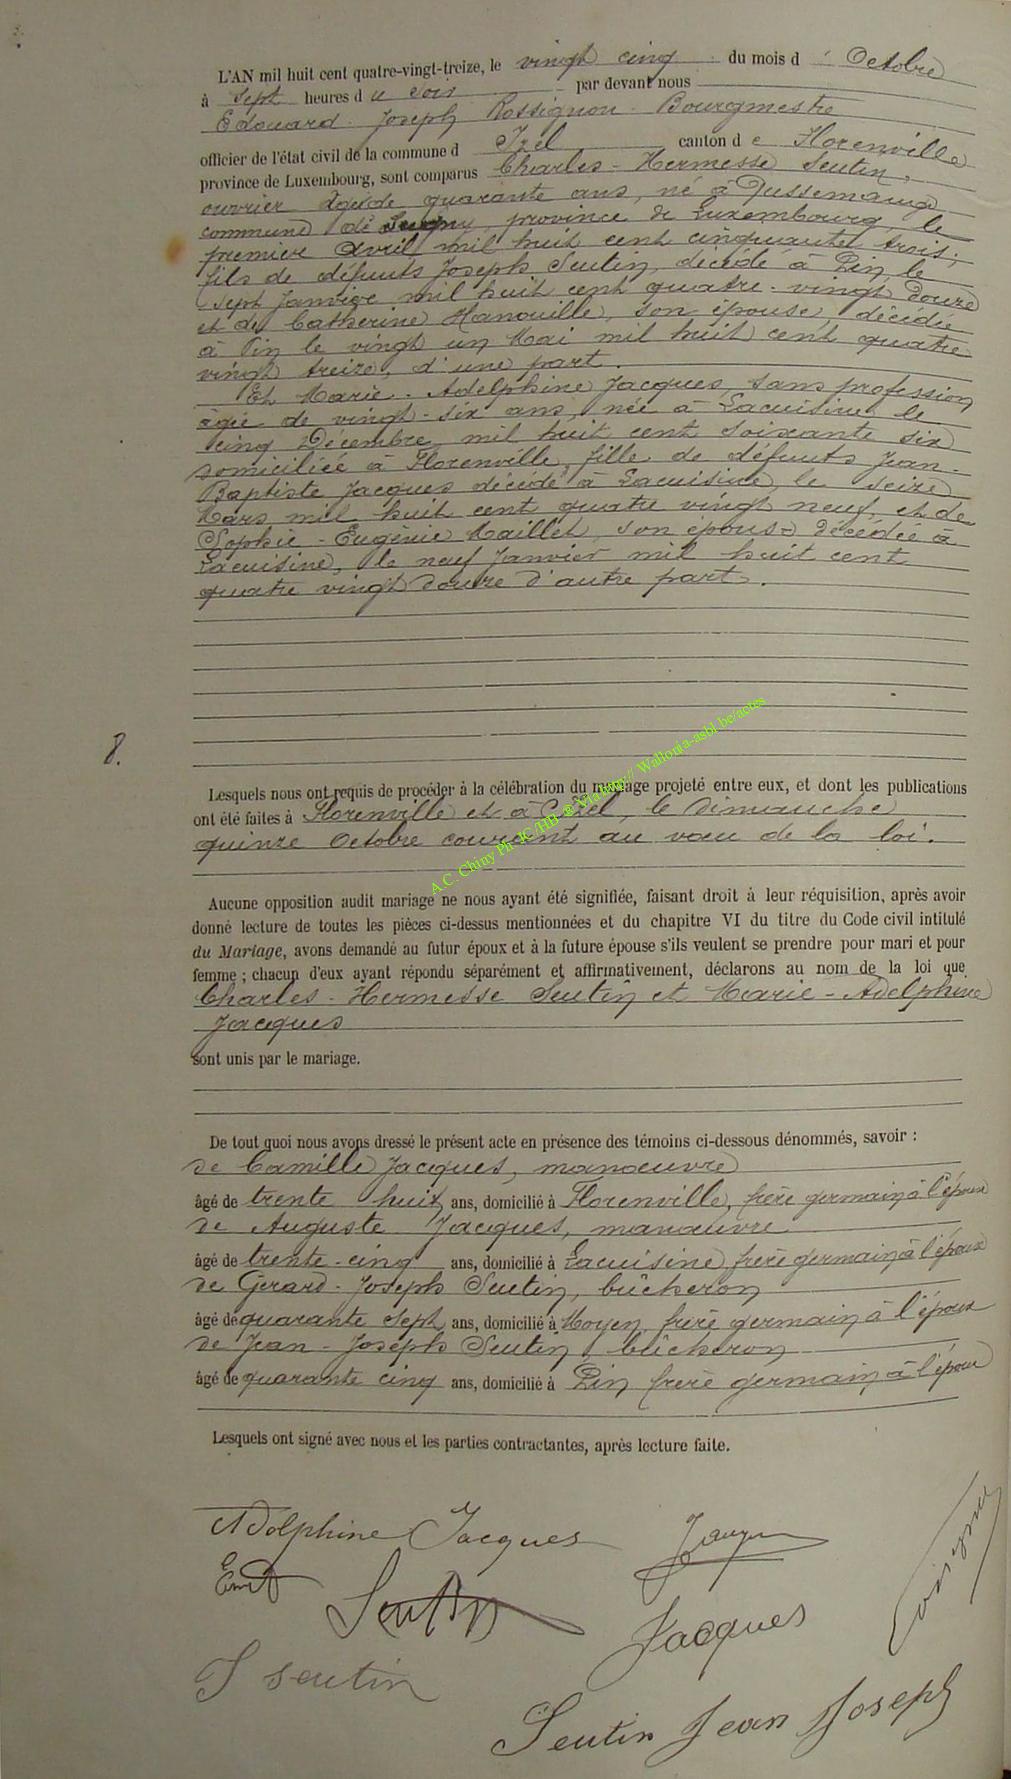 L'AN mil huit cent quatre-vingt-treize, le vingt cinq du mois d' Octobre
à sept heures du soir par devant nous
Edouard Joseph Rossignon Bourgmestre
officier de l'état civil de la commune d Izel canton de Florenville
province de Luxembourg, sont comparus Charles-Hermesse Seutin,
ouvrier âgé de quarante ans, né à Pussemange
commune de Sugny, province de Luxembourg, le
premier Avril mil huit cent cinquante trois,
fils de défunts Joseph Seutin, décédé à Pin le
sept Janvier mil huit cent quatre-vingt douze
et de Catherine Hanouille, son épouse, décédée
à Pin le vingt un Mai mil huit cent quatre
vingt treize, d'une part.
Et Marie-Adelphine Jacques, sans profession
âgée de vingt-six ans, née à Lacuisine le
cinq Décembre mil huit cent soixante six
domiciliée à Florenville, fille de défunts Jean-
Baptiste Jacques décédé à Lacuisine, le seize
Mars mil huit cent quatre vingt neuf, et de
Sophie-Eugènie Maillet, son épouse décédée à
Lacuisine, le neuf Janvier mil huit cent
quatre vingt douze d'autre part.
8.
Lesquels nous ont requis de procéder à la célébration du mariage projeté entre eux, et dont les publications
ont été faites à Florenville et à Izel, le Dimanche
quinze Octobre courant au vœu de la loi.
A.C. Chiny Ph JC/HB ® Via http:// Wallonia-asbl.be/actes
Aucune opposition audit mariage ne nous ayant été signifiée, faisant droit à leur réquisition, après avoir
donné lecture de toutes les pièces ci-dessus mentionnées et du chapitre VI du titre du Code civil intitulé
du Mariage, avons demandé au futur époux et à la future épouse s'ils veulent se prendre pour mari et pour
femme ; chacun d'eux ayant répondu séparément et affirmativement, déclarons au nom de la loi que
Charles-Hermesse Seutin et Marie-Adelphine
Jacques
sont unis par le mariage.
De tout quoi nous avons dressé le présent acte en présence des témoins ci-dessous dénommés, savoir :
de Camille Jacques, manœuvre
âgé de trente huit ans, domicilié à Florenville, frère germain à l'épouse
de Auguste Jacques, manœuvre
âgé de trente-cinq ans, domicilié à Lacuisine, frère germain à l'épouse
de Gerard-Joseph Seutin, bûcheron
âgé de quarante sept ans, domicilié à Moyen, frère germain à l'époux
de Jean-Joseph Seutin, bûcheron
âgé de quarante cinq ans, domicilié à Pin frère germain à l'époux
Lesquels ont signé avec nous et les parties contractantes, après lecture faite.
Adolphine Jacques
Seutin
Jacques
J seutin
Seutin Jean Joseph